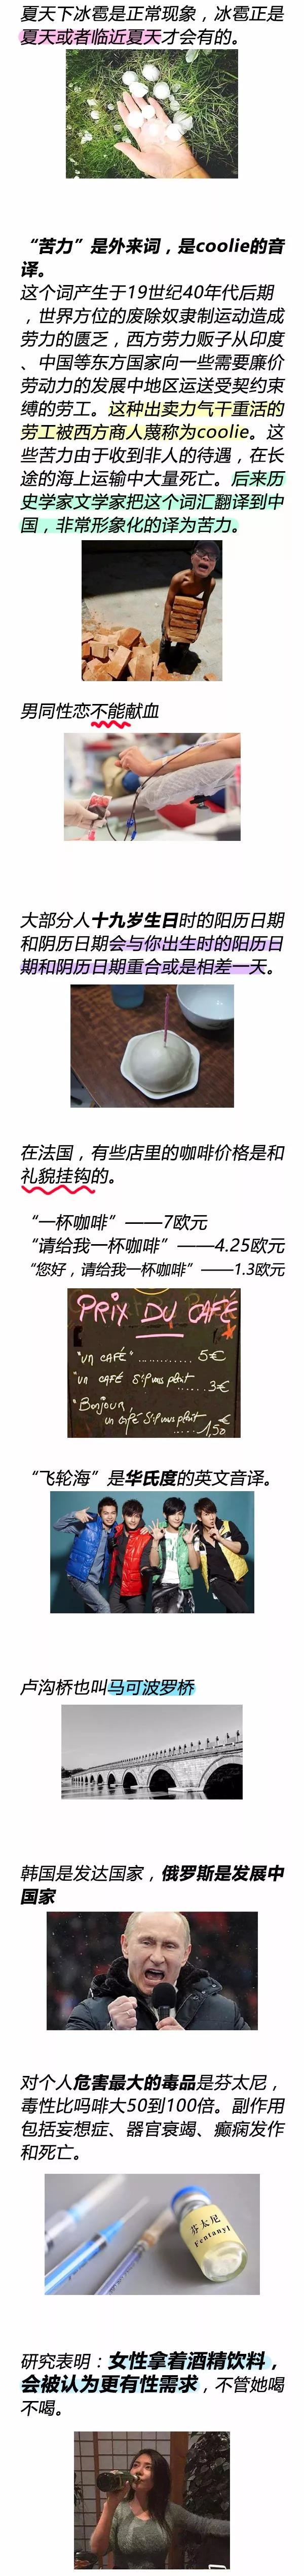 夏天下冰雹是正常现象，冰雹正是
夏天或者临近夏天才会有的。
“苦力”是外来词，是coolie的音
译。
这个词产生于19世纪40年代后期
，世界方位的废除奴隶制运动造成
劳力的匮乏，西方劳力贩子从印度
、中国等东方国家向一些需要廉价
劳动力的发展中地区运送受契约束
缚的劳工。这种出卖力气干重活的
劳工被西方商人蔑称为coolie。这
些苦力由于收到非人的待遇，在长
途的海上运输中大量死亡。后来历
史学家文学家把这个词汇翻译到中
国，非常形象化的译为苦力。
男同性恋不能献血
大部分人十九岁生日时的阳历日期
和阴历日期会与你出生时的阳历日
期和阴历日期重合或是相差一天。
在法国，有些店里的咖啡价格是和
礼貌挂钩的。
“一杯咖啡”——7欧元
“请给我一杯咖啡”——4.25欧元
“您好，请给我一杯咖啡”——1.3欧元
PRIX DU CAFÉ
"un CAFÉ" .............. 5€
"un CAFÉ S'il vous plait
...... 3€
"Bonjour,
un café S'il vous plait
..... 1,50 €
“飞轮海”是华氏度的英文音译。
卢沟桥也叫马可波罗桥
韩国是发达国家，俄罗斯是发展中
国家
对个人危害最大的毒品是芬太尼，
毒性比吗啡大50到100倍。副作用
包括妄想症、器官衰竭、癫痫发作
和死亡。
芬太尼
Fentanyl
研究表明：女性拿着酒精饮料，
会被认为更有性需求，不管她喝
不喝。